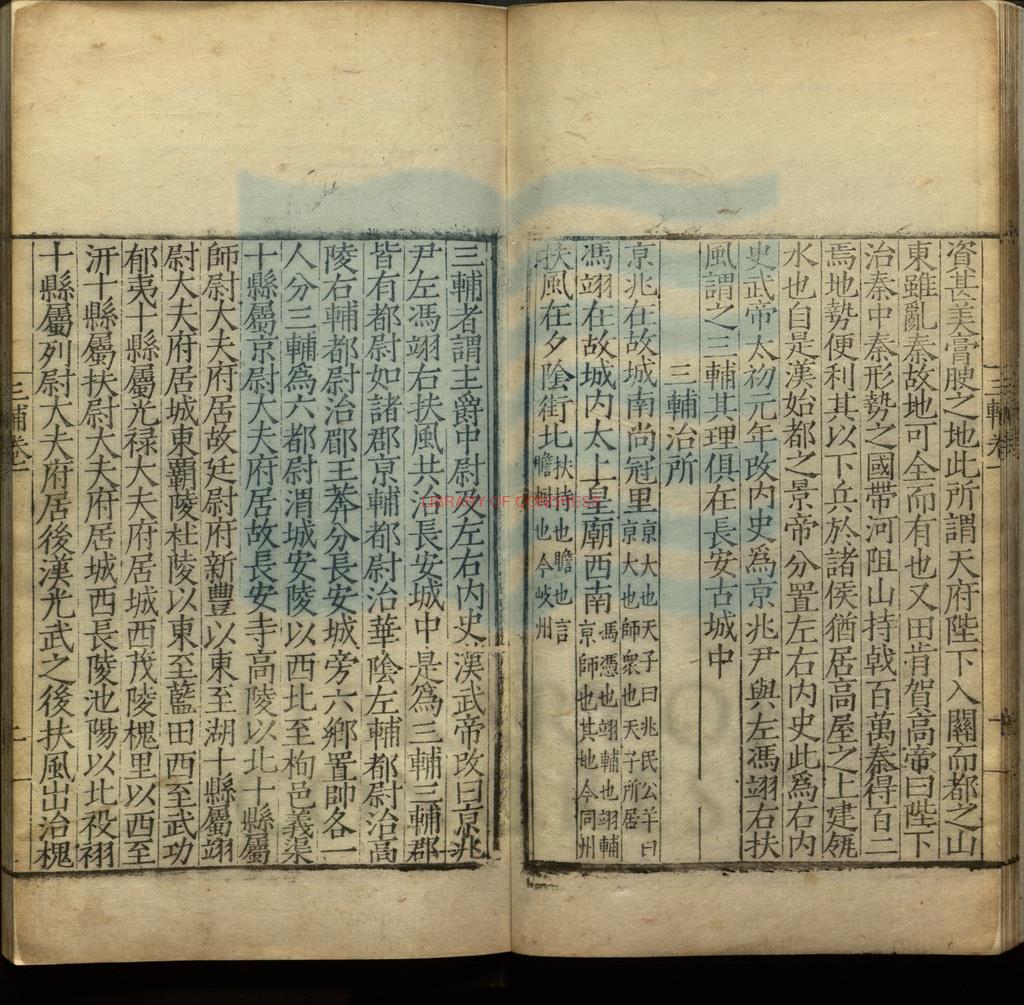 資甚美膏腴之地此所謂天府陛下入關而都之山
東雖亂秦故地可全而有也又田肯賀高帝曰陛下
治秦中秦形勢之國帶河阻山持戟百萬秦得百二
焉地勢便利其以下兵於諸侯猶居高屋之上建瓴
水也自是漢始都之景帝分置左右內史此爲右內
史武帝太初元年改內史爲京兆尹與左馮翊右扶
風謂之三輔其理俱在長安古城中
三輔治所
京兆在故城南尚冠里京大也天子曰兆民公羊曰
京大也師衆也天子所居
馮翊在故城內太上皇廟西南馮憑也翊輔也翊輔
京師也其地今同州
扶風在夕陰街北扶持也贍也言
贍

也今岐州
三輔卷一
三輔者謂主爵中尉及左右內史漢武帝改曰京兆
尹左馮翊右扶風共治長安城中是爲三輔三輔郡
皆有都尉如諸郡京輔都尉治華陰左輔都尉治高
陵右輔都尉治郿王莽分長安城旁六鄉置帥各一
人分三輔爲六都尉渭城安陵以西北至栒邑義渠
十縣屬京尉大夫府居故長安寺高陵以北十縣屬
師尉大夫府居故廷尉府新豐以東至湖十縣屬翊
尉大夫府居城東霸陵杜陵以東至藍田西至武功
郁夷十縣屬光祿大夫府居城西茂陵槐里以西至
汧十縣屬扶尉大夫府居城西長陵池陽以北祋祤
十縣屬列尉大夫府居後漢光武之後扶風出治槐
三輔卷一
二
LIBRARY OF CONGRESS